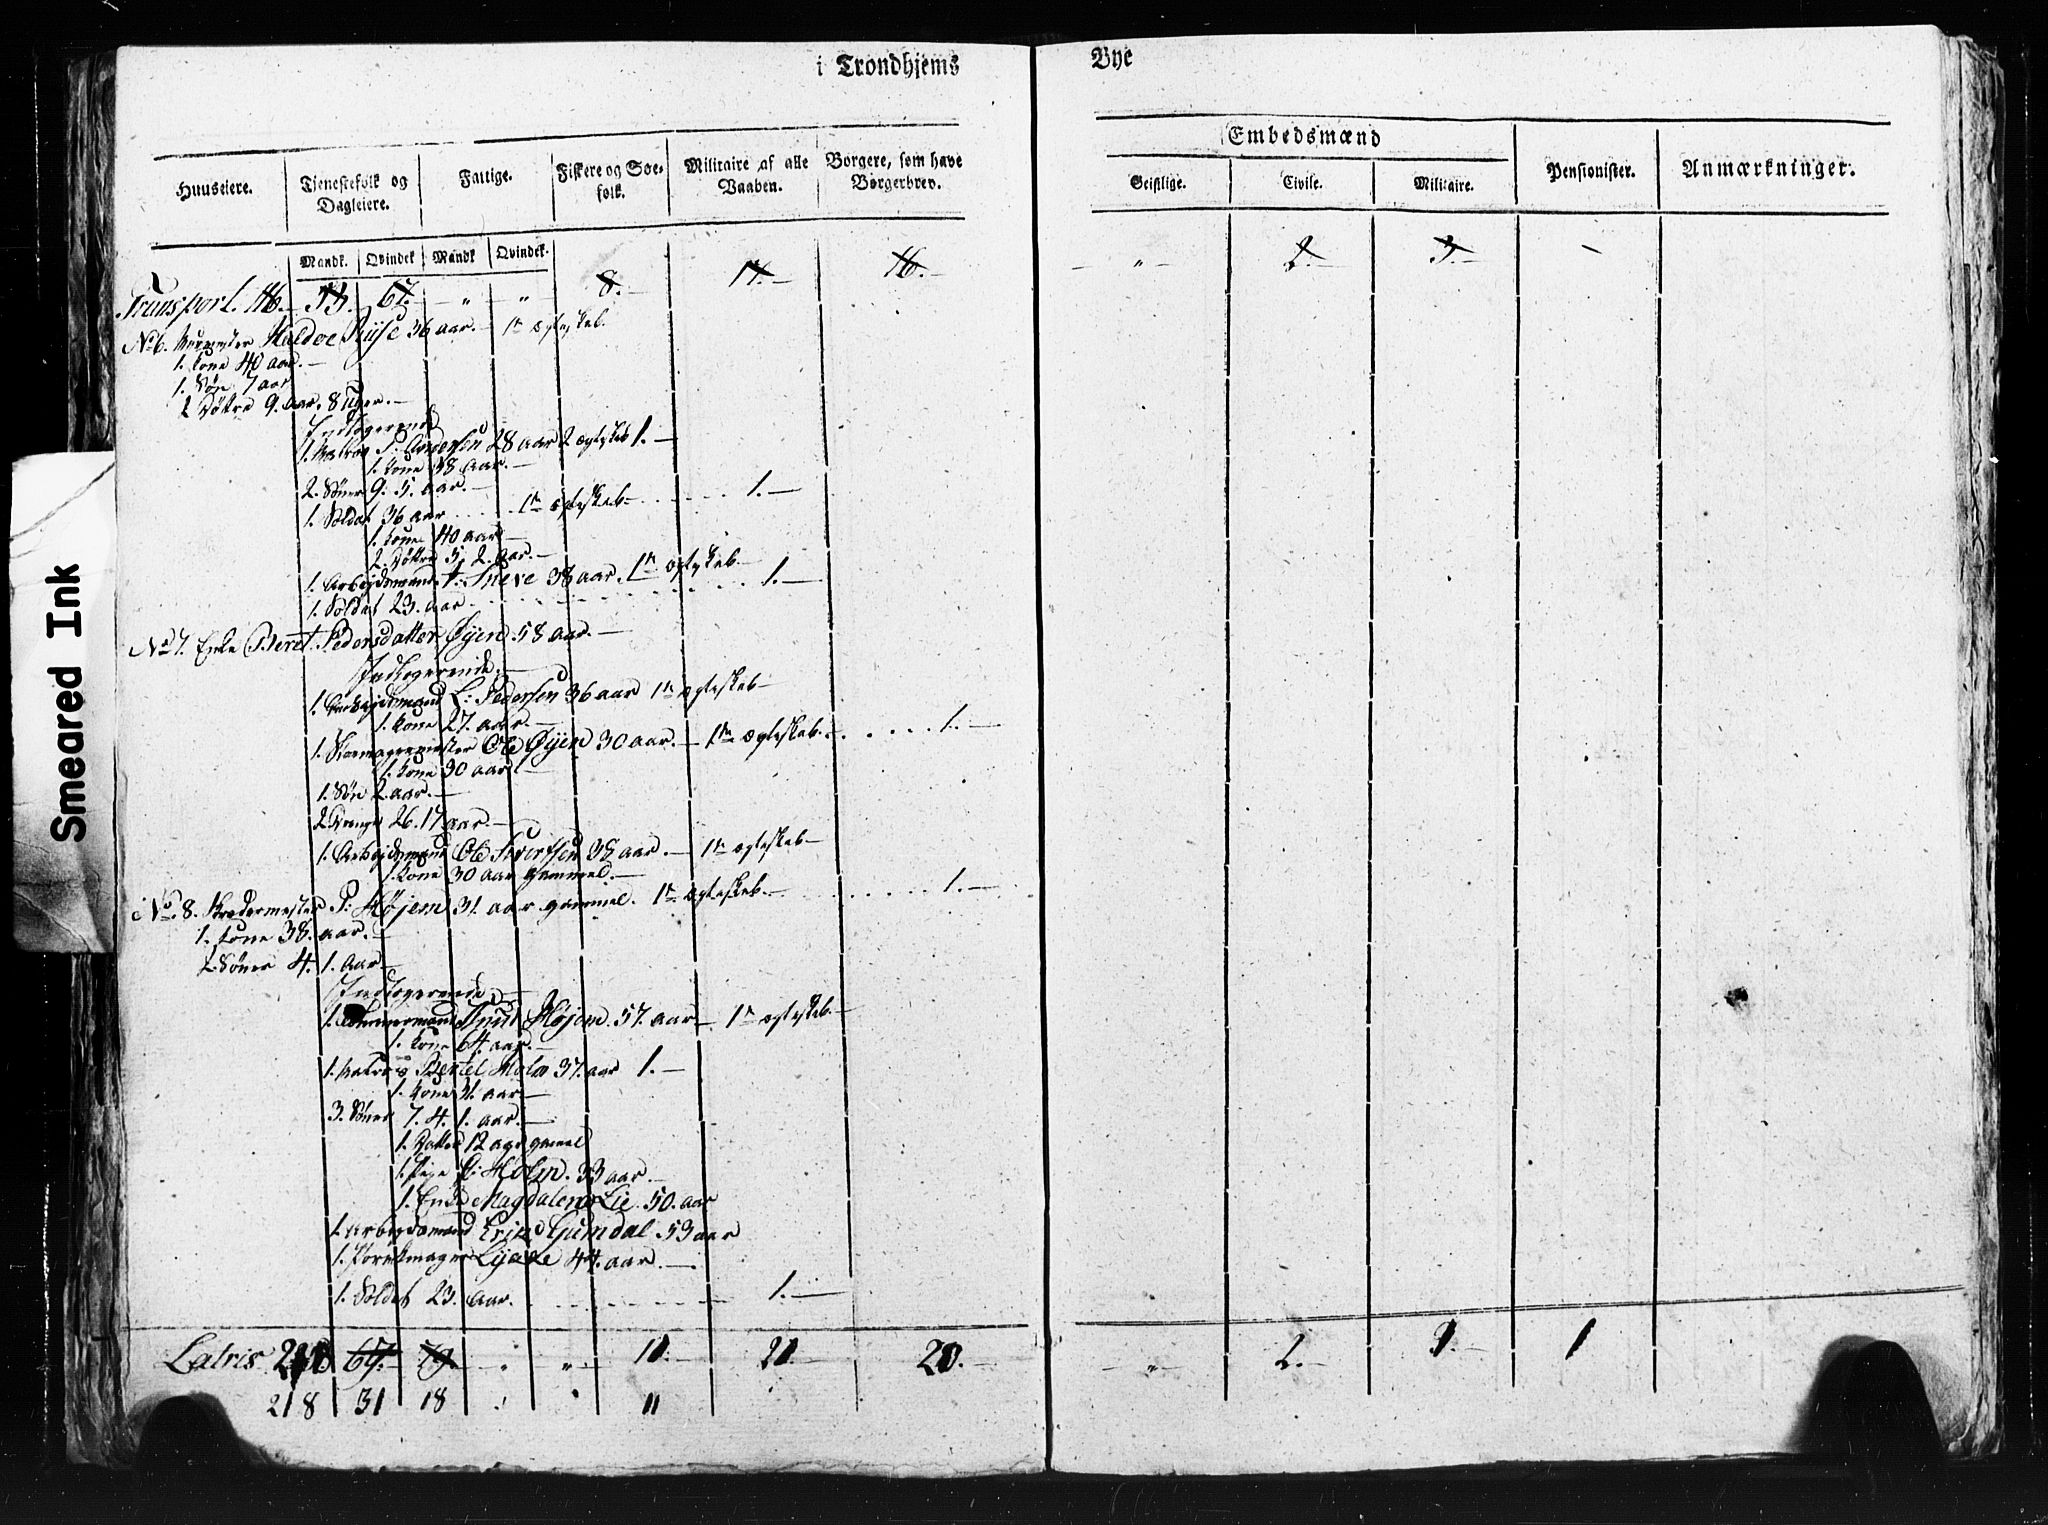 i Trondhjems Bye
Embedsmænd
Huuseiere. Tienestefolk og Dagleiere. Fattige. Fiskere og Søefolk. Militaire af alle Vaaben. Borgere, som have Borgerbrev. Geistlige. Civile. Militaire. Pensionister. Anmærkninger.
Mandk. Qvindek Mandk Qvindek.
Transport. 67. — " — " 8. — 17. — 16. — — " — 2. — 3. — —
No 6. Haldoe Riise 36 aar. — 1te ægteskab.
1. Kone 40 aar. —
1. Søn 7 aar
2 Døttre 9. aar. 8 uger. —
Indlogerende
1. Matros P. Andersen 28 aar 2 ægteskab 1. —
1. Kone 38 aar. —
2. Sønner 9. 5. aar. —
1. Soldat 36 aar . . . . 1te ægteskab — . . . . 1. —
1. Kone 40 aar —
2. Døttre 5. 2. aar. —
1. Arbejdsmand T: Sneve 38 aar. 1te ægteskab —
1. Soldat 23. aar . . . . 1. —
No 7. Enke Beret Pedersdatter Øyen 58 aar. —
Indlogerende. —
1. Arbejdsmand L: Pedersen 36 aar 1te ægteskab —
1. Kone 27. aar. —
1. Skomagermester Ole Øyen 30 aar. — 1te ægteskab. . . . . . 1. —
1. Kone 30 aar —
1. Søn 2. aar. —
2. Drenge 26. 17 aar. —
1. Arbejdsmand Ole Sivertsen 38 aar. — 1te ægteskab —
1. Kone 30 aar gammel. —
No. 8. Skredermester P: Højem 31. aar gammel. 1te ægteskab. — . . . . . 1. —
1. Kone 38. aar. —
2 Sønner 4. 1. aar —
Indlogerende. —
1. Tømmermand Knud Højem 57. aar — 1te ægteskab. —
1. Kone 64. aar. —
1. Matros Bertel Holm 37. aar 1. —
1. Kone 31. aar —
3. Sønner 7. 4. 1. aar. —
1. Datter 12 aar gamel
1. Pige Holm. 33 aar. —
1. Enke Magdalena Lie 50. aar
1 Arbejdsmand Erik Gjumdal 53 aar
1. 44. aar. —
1. Soldat 23. aar. . . . . 1. —
Latris 67. — 79 " " 11. — 21 — 20. — — " — 2. — 1
218 31 18 11
Smeared Ink